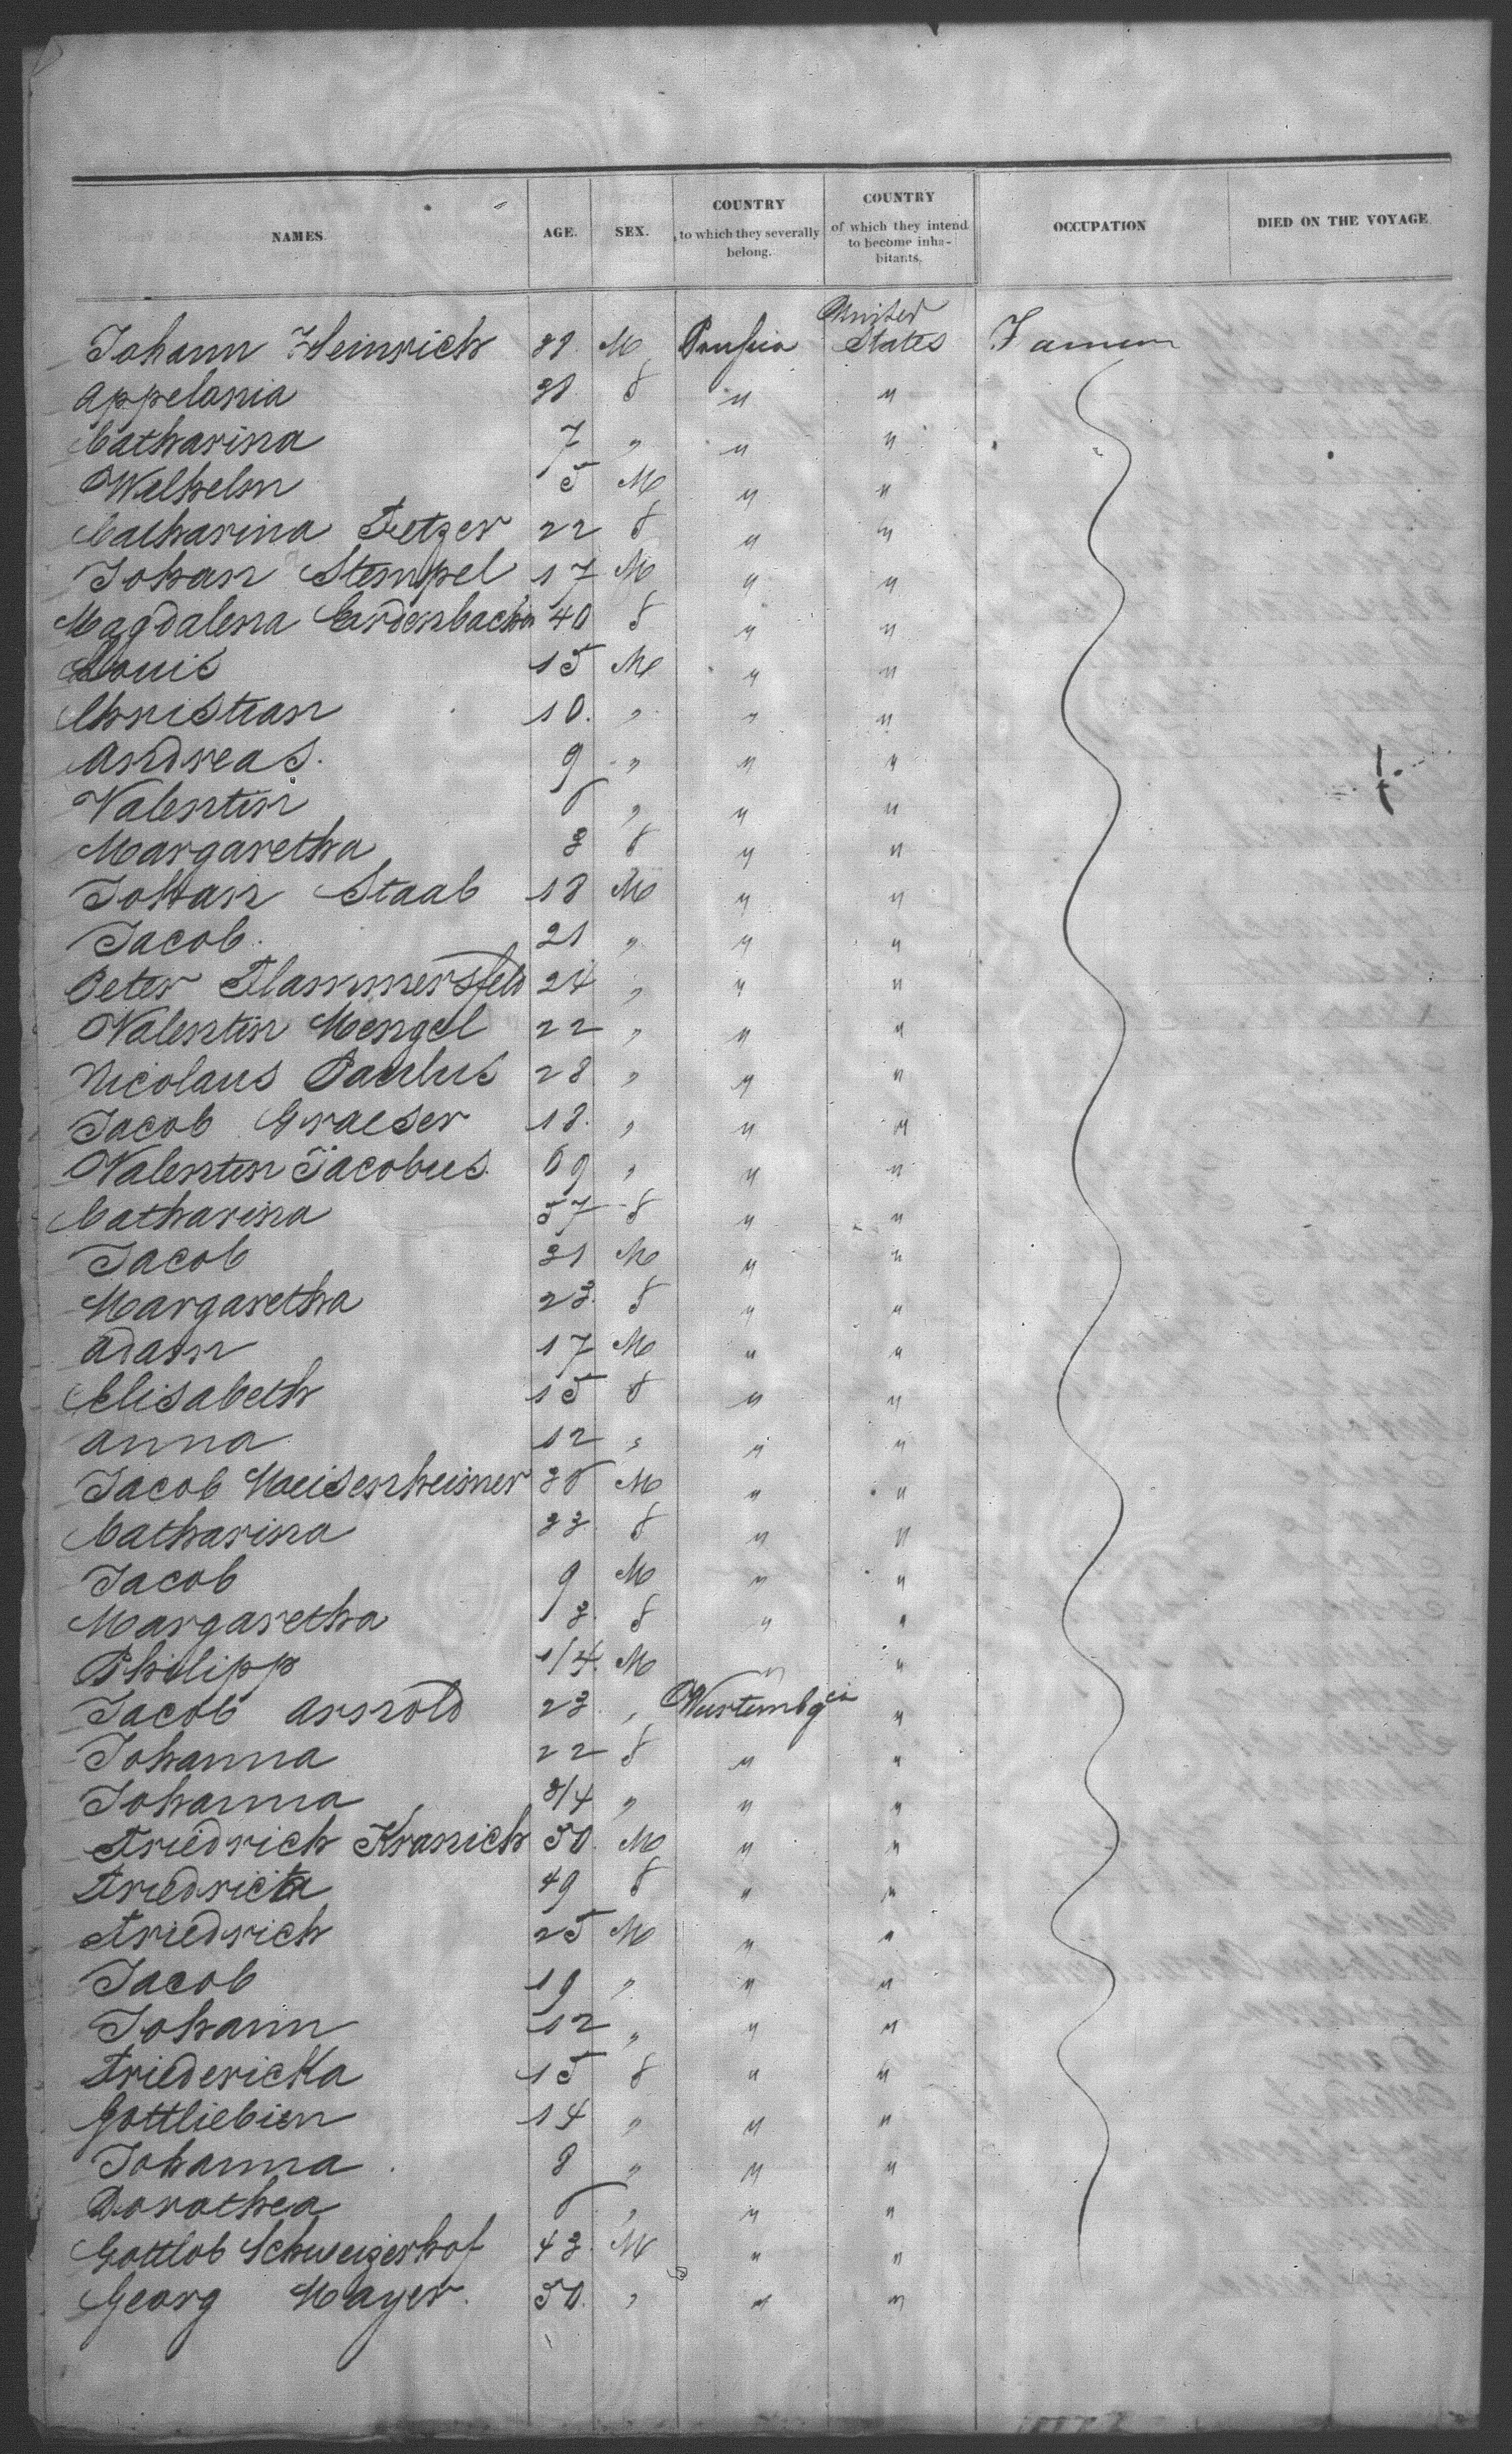 NAMES. AGE. SEX. COUNTRY to which they severally belong. COUNTRY of which they intend to become inha-bitants. OCCUPATION DIED ON THE VOYAGE
Johann Heinrich 38. M Prussia United States Farmer
Appelonia 28. f " "
Catharina 7 " " "
Wilhelm 5 M " "
Catharina Fetzer 22 f " "
Johan Stempel 17 M " "
Magdalena 40 f " "
Louis 15 M " "
Christian 10. " " "
Andreas. 9 " " "
Valentin 6 " " "
Margaretha 3 f " "
Johan Staab 18 M " "
Jacob. 21 " " "
Peter Flammersfeld 24 " " "
Valentin Mengel 22 " " "
Nicolaus Paulus 28 " " "
Jacob Graeser 18. " " "
Valentin Jacobus. 69 " " "
Catharina 57 f " "
Jacob 31 M " "
Margaretha 23. f " "
Adam 17 M " "
Elisabeth 15 f " "
Anna 12 " " "
Jacob Meisenheimer 36 M " "
Catharina 33. f " "
Jacob 9 M " "
Margaretha 3. f " "
Philipp 1/4. M " "
Jacob Arnold 23. " "
Johanna 22 f " "
Johanna 3/4 " " "
Friedrich Kranich 50. M " "
Friedricka 49 f " "
Friedrich 25 M " "
Jacob 19 " " "
Johann 12 " " "
Friedericka 15 f " "
Gottliebien 14 " " "
Johanna 8 " " "
Dorothea 6 " " "
Gottlob Schweizerhof 43. M " "
Georg Mayer. 50. " " "